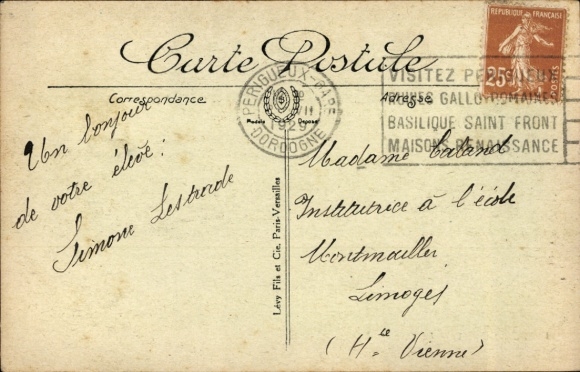 Carte Postale
Correspondance
Adresse
Modèle Déposé
PÉRIGUEUX-GARE
1929
DORDOGNE
REPUBLIQUE FRANÇAISE
25c
POSTES
VISITEZ PERIGUEUX
RUINES GALLO ROMAINES
BASILIQUE SAINT FRONT
MAISONS RENAISSANCE
Un bonjour
de votre élève:
Simone Lestrade
Lévy Fils et Cie, Paris-Versailles
Madame
Institutrice à l'école
Montmailler
Limoges
(Hte Vienne)